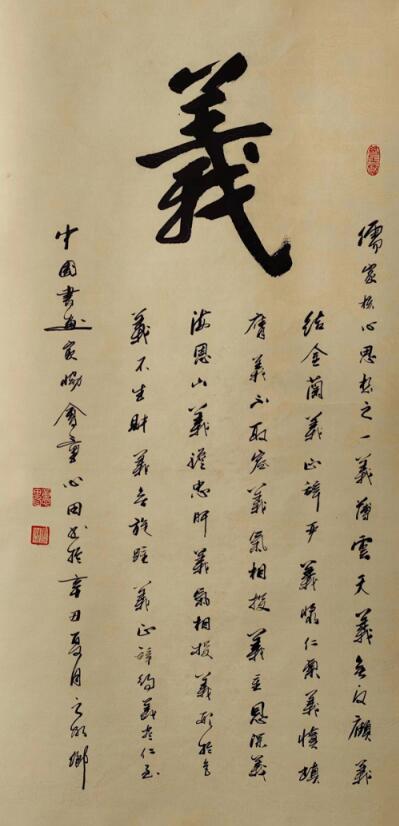 義
儒家核心思想之一義薄雲天義無反顧義
結金蘭義正辭嚴義懷仁義憤填
膺義不取容義氣相投義重恩深義
海恩山義膽忠肝義氣相投義形於色
義不生財義無旋踵義正辭約義盡仁至
中國書畫家協會童心田書於辛丑夏月之